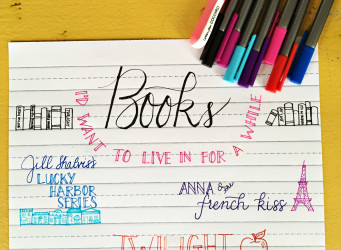 Books
I'D WANT TO LIVE IN FOR A WHILE
Jill Shalvis's
LUCKY
HARBOR
SERIES
ANNA & the
french kiss
TWILIGHT